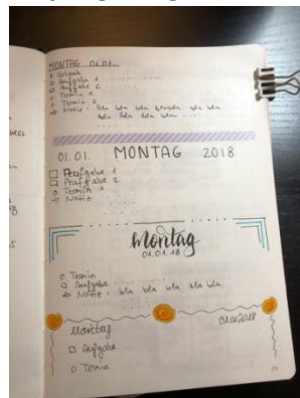 MONTAG 01.01.
Aufgabe 1
Aufgabe 2
Termin 1
Termin 2
Notiz: bla bla bla blabla bla bla
bla bla bla bla
01.01. MONTAG 2018
Aufgabe 1
Aufgabe 2
Termin 1
Notiz
Montag
01.01.18
Termin
Aufgabe
Notiz: bla bla bla bla bla
Montag 01.01.2018
Aufgabe
Termin